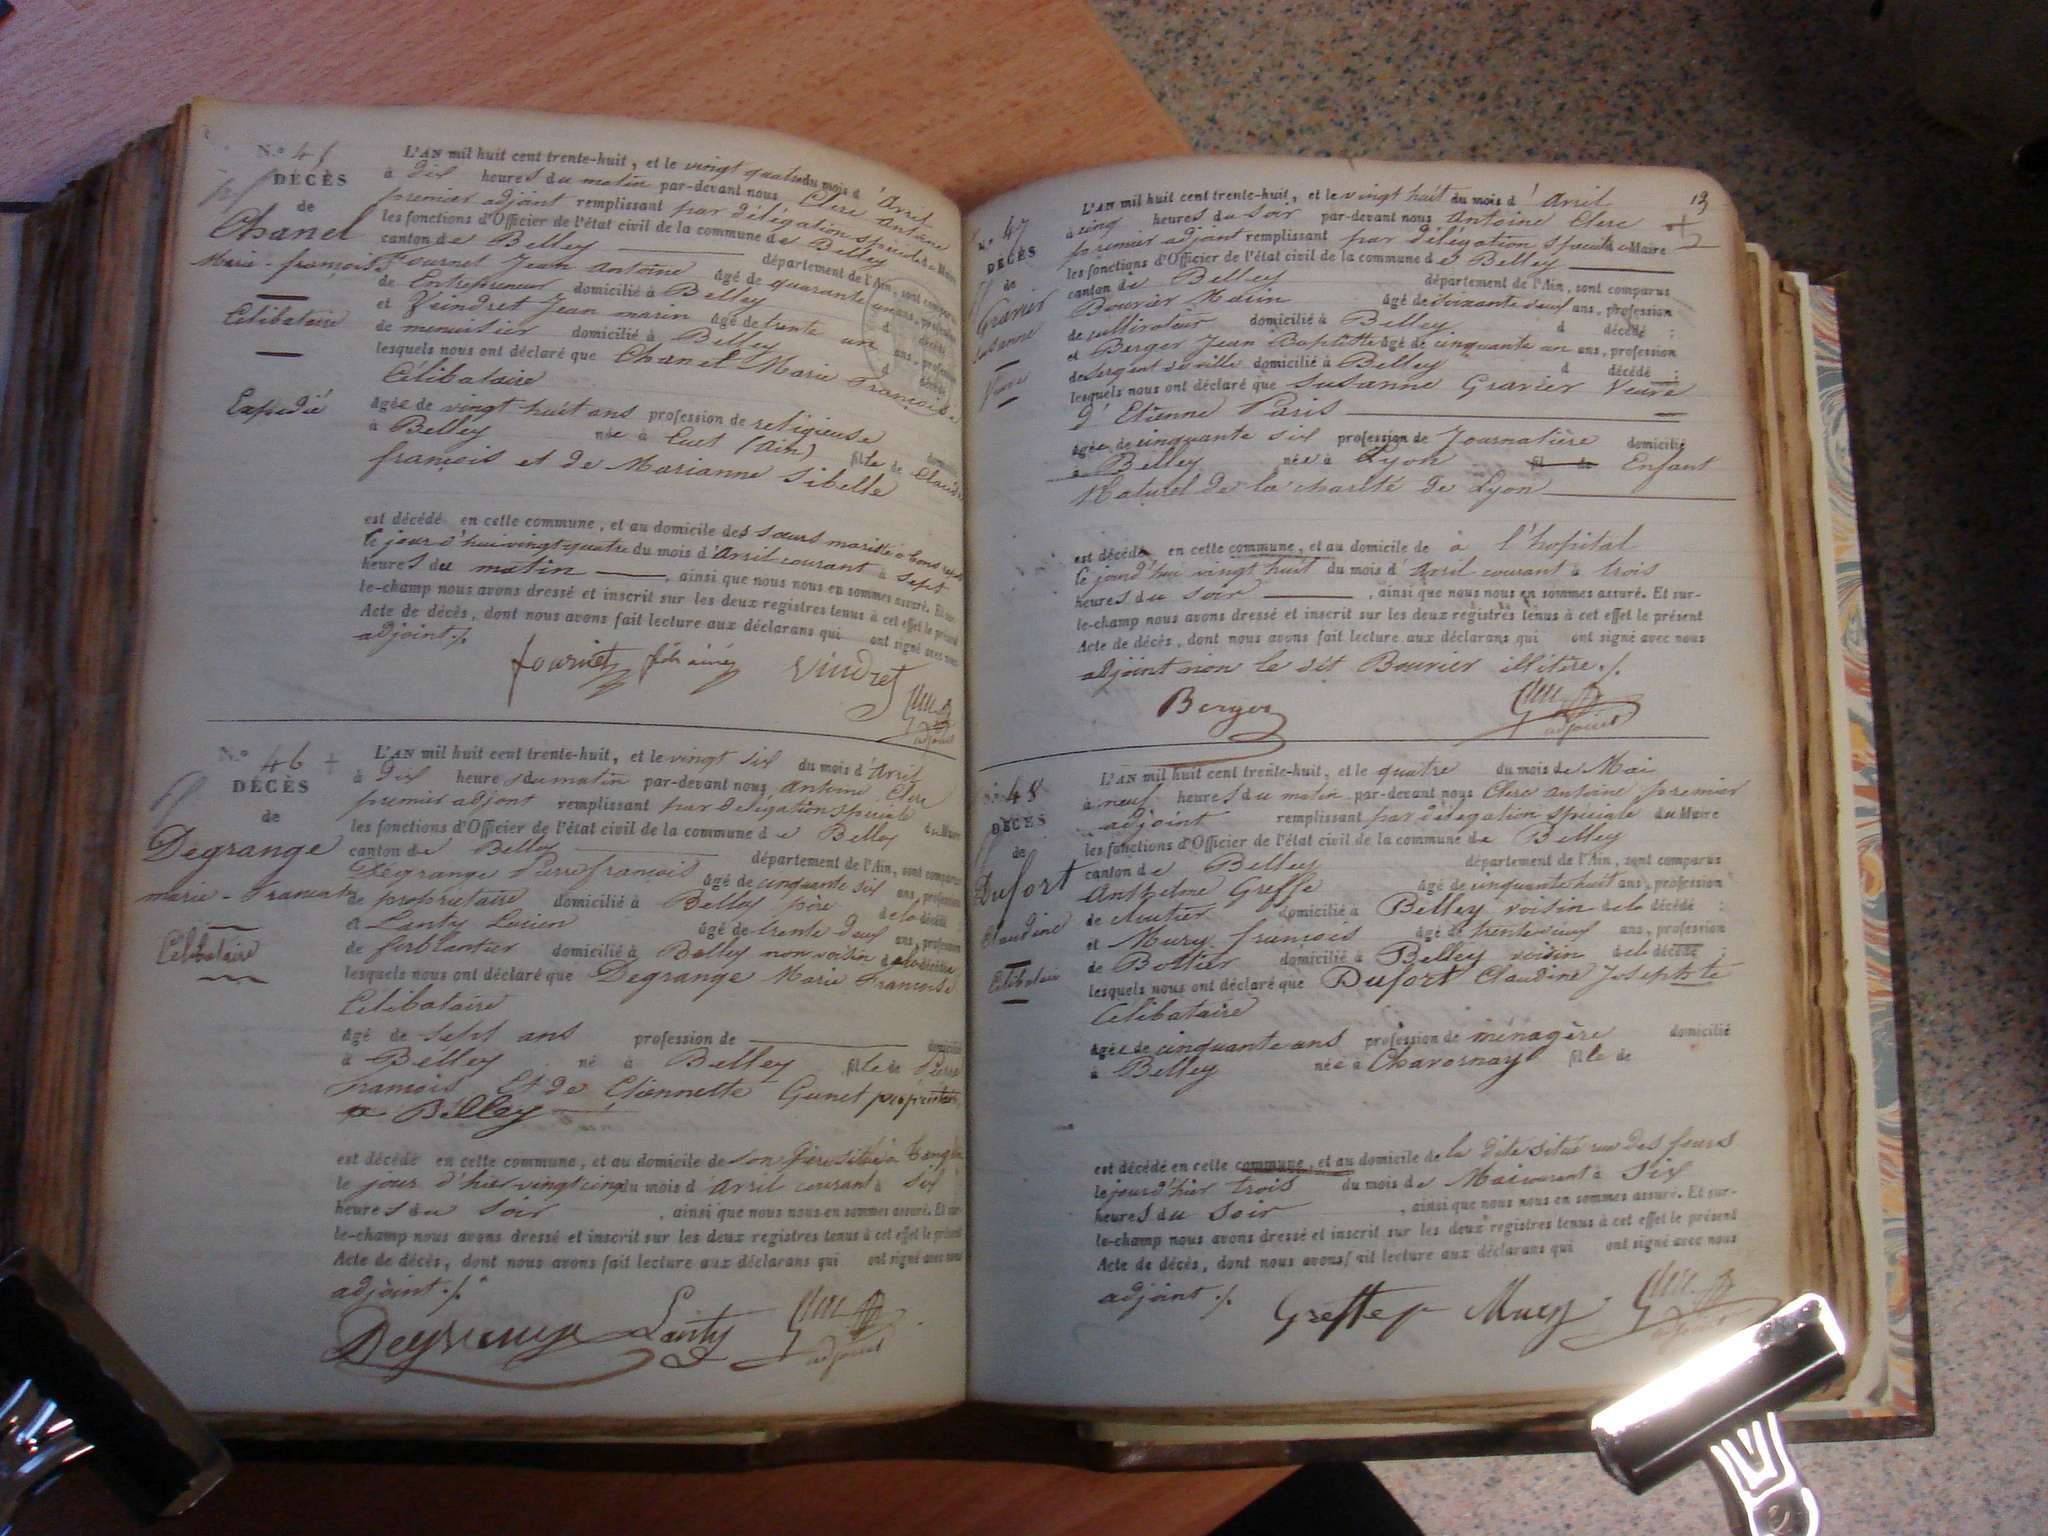 N.o 45
DÉCÈS
de
Chanel
Marie-françoise
Célibataire
Expedié
L'AN mil huit cent trente-huit, et le vingt quatre du mois d'Avril
à dix heures du matin par-devant nous Clerc Antoine
premier adjoint remplissant par délégation spéciale du Maire
les fonctions d'Officier de l'état civil de la commune de Belley
canton de Belley département de l'Ain, sont comparus
Fournet Jean Antoine âgé de quarante un ans, profession
de Entrepreneur domicilié à Belley d décédé
et Vuindret Jean marin âgé de trente un ans, profession
de menuisier domicilié à Belley d décédé
lesquels nous ont déclaré que Chanel Marie Françoise
Célibataire
âgée de vingt huit ans profession de religieuse domicilié
à Belley née à Cuet (Ain) fille de Claude
françois et de Marianne Sibelle
est décédé en cette commune, et au domicile des Soeurs mariste à bons repos
le jour d'hui vingt quatre du mois d'Avril courant à Sept
heures du matin , ainsi que nous nous en sommes assuré. Et sur-
le-champ nous avons dressé et inscrit sur les deux registres tenus à cet effet le présent
Acte de décès, dont nous avons fait lecture aux déclarans qui ont signé avec nous
adjoint ./.
fournet fils ainé Vindret Clerc
adjoint
N.o 46 +
DÉCÈS
de
Degrange
marie-Francoise
Célibataire
L'AN mil huit cent trente-huit, et le vingt six du mois d'Avril
à dix heures du matin par-devant nous Antoine Clerc
premier adjoint remplissant par délégation spéciale du Maire
les fonctions d'Officier de l'état civil de la commune de Belley
canton de Belley département de l'Ain, sont comparus
Degrange Pierre françois âgé de cinquante six ans, profession
de propriétaire domicilié à Belley père de la décédé
et Lanty Lucien âgé de trente deux ans, profession
de ferblantier domicilié à Belley non voisin de la décédée
lesquels nous ont déclaré que Degrange Marie Francoise
Célibataire
âgé de sept ans profession de domicilié
à Belley né à Belley fille de Pierre
françois Et de Etiennette Gunet propriétaire
a Belley
est décédé en cette commune, et au domicile de son père situé à
le jour d'hier vingt cinq du mois d'Avril courant à six
heures du soir , ainsi que nous nous en sommes assuré. Et sur-
le-champ nous avons dressé et inscrit sur les deux registres tenus à cet effet le présent
Acte de décès, dont nous avons fait lecture aux déclarans qui ont signé avec nous
adjoint ./.
Degrange Lanty Clerc
adjoint
13
N.o 47
DÉCÈS
de
Gravier
Susanne
Veuve
L'AN mil huit cent trente-huit, et le vingt huit du mois d'Avril
à cinq heures du soir par-devant nous Antoine Clerc
premier adjoint remplissant par délégation spéciale du Maire
les fonctions d'Officier de l'état civil de la commune de Belley
canton de Belley département de l'Ain, sont comparus
Bouvier Marin âgé de soixante neuf ans, profession
de cultivateur domicilié à Belley d décédé ;
et Berger Jean Baptiste âgé de cinquante un ans, profession
de Sergent de ville domicilié à Belley d décédé ;
lesquels nous ont déclaré que Susanne Gravier Veuve
d'Etienne Paris
âgée de cinquante six profession de Journalière domicilié
à Belley née à Lyon fil de Enfant
Naturel de la charité de Lyon
est décédé en cette commune, et au domicile de à l'hopital
le jourd'hui vingt huit du mois d'Avril courant à trois
heures du soir , ainsi que nous nous en sommes assuré. Et sur-
le-champ nous avons dressé et inscrit sur les deux registres tenus à cet effet le présent
Acte de décès, dont nous avons fait lecture aux déclarans qui ont signé avec nous
adjoint non le dit Bouvier illitère ./.
Berger Clerc
adjoint
N.o 48
DÉCÈS
de
Dufort
Claudine
Célibataire
L'AN mil huit cent trente-huit, et le quatre du mois de Mai
à neuf heures du matin par-devant nous Clerc Antoine premier
adjoint remplissant par délégation spéciale du Maire
les fonctions d'Officier de l'état civil de la commune de Belley
canton de Belley département de l'Ain, sont comparus
Anthelme Greffe âgé de cinquante huit ans, profession
de cloutier domicilié à Belley voisin de la décédé ;
et Mury françois âgé de trente deux ans, profession
de Bottier domicilié à Belley voisin de la décédé ;
lesquels nous ont déclaré que Dufort Claudine Josephte
Célibataire
âgée de cinquante ans profession de ménagère domicilié
à Belley née à Chavornay fille de
est décédé en cette commune, et au domicile de la dite situé rue des fours
le jourd'hier trois du mois de Mai courant à Six
heures du Soir , ainsi que nous nous en sommes assuré. Et sur-
le-champ nous avons dressé et inscrit sur les deux registres tenus à cet effet le présent
Acte de décès, dont nous avons fait lecture aux déclarans qui ont signé avec nous
adjoint ./.
Greffe Mury Clerc
adjoint